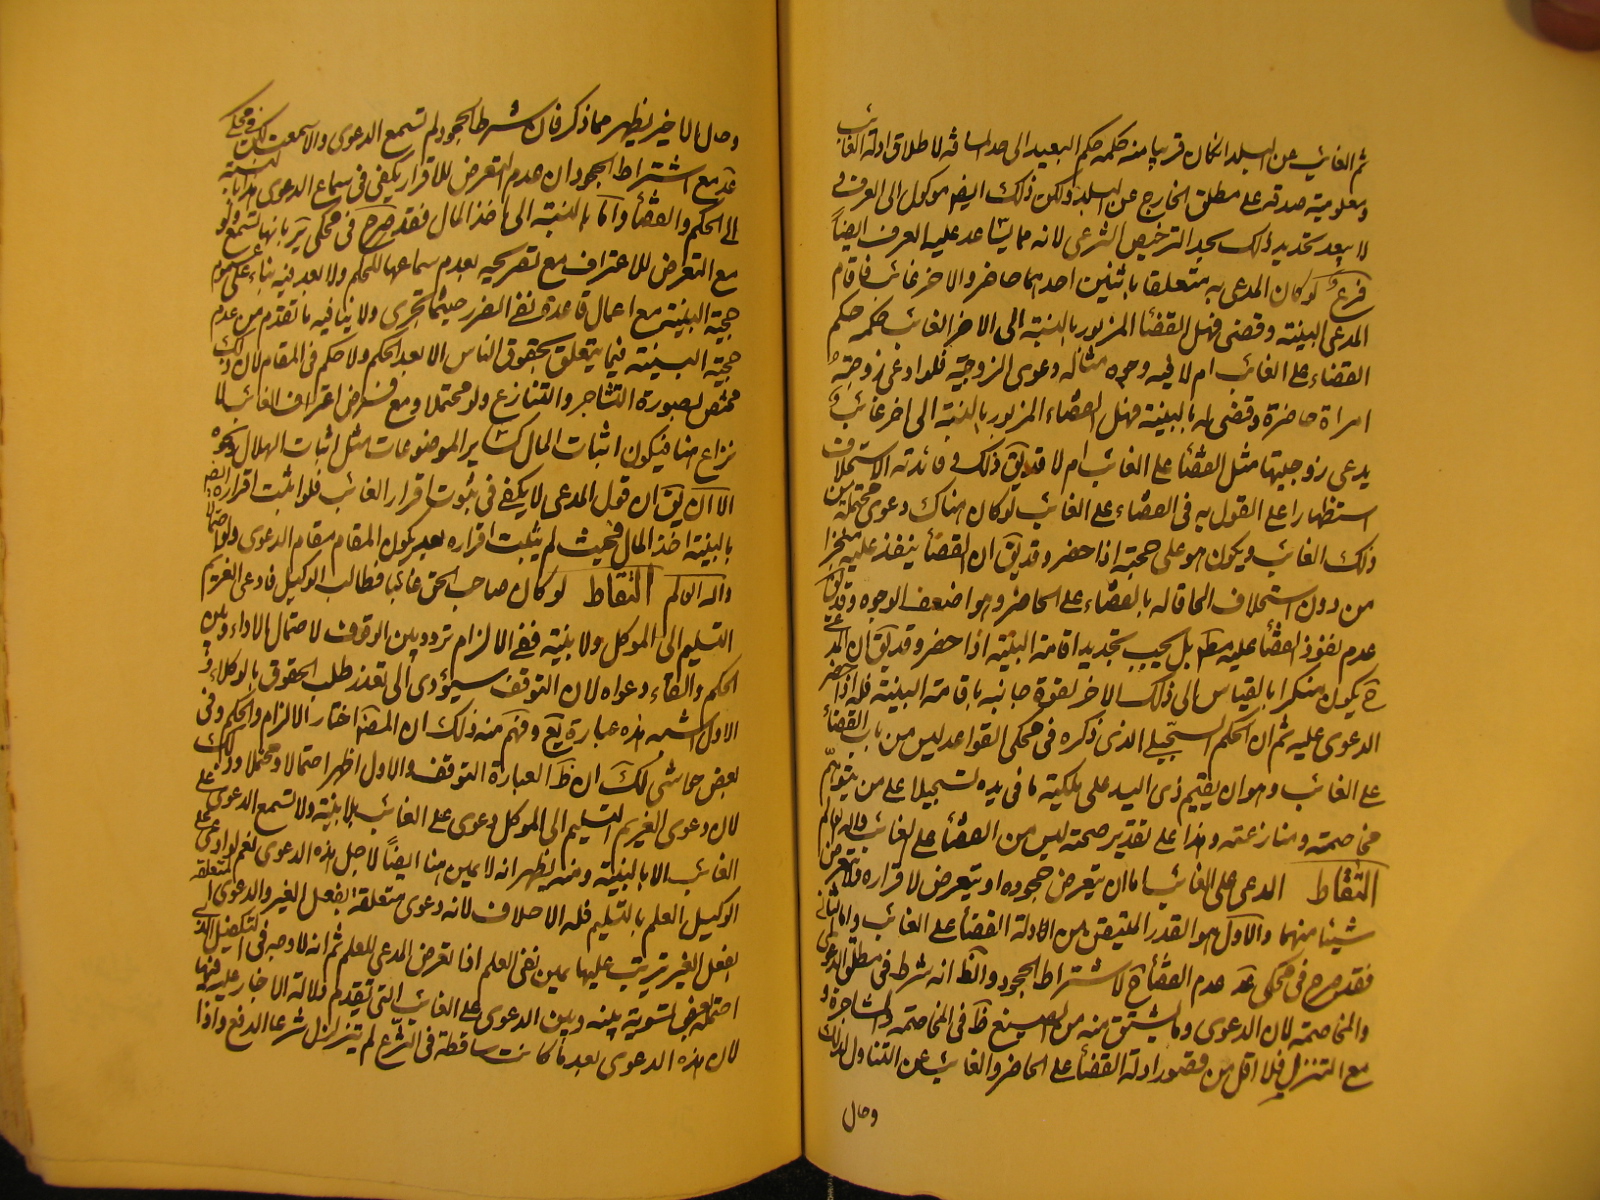 ثم الغائب عن البلد ان كان قريبا منه حكمه حكم البعيد الى حد المسافة لاطلاق ادلة الغائب
ومعلومية صدقه على مطلق الخارج عن البلد ولكن ذلك ايضا موكول الى العرف و
لا يبعد تحديد ذلك بحد الترخيص الشرعي لانه مما يساعد عليه العرف ايضاً
فرع لو كان المدعى به متعلقا باثنين احدهما حاضر والاخر غائب فاقام
المدعى البينة وقضى فهل القضاء المزبور بالنسبة الى الاخر الغائب حكمه حكم
القضاء على الغائب ام لا فيه وجوه مثاله دعوى الزوجية فلو ادعى زوجية
امراة حاضرة وقضى له بالبينة فهل القضاء المزبور بالنسبة الى اخر غائب
يدعى زوجيتها مثل القضاء على الغائب ام لا قد يق ذلك و فائدته الاستحلاف
استظهارا على القول به فى القضاء على الغائب لو كان هناك دعوى محتملة من
ذلك الغائب ويكون هو على حجته اذا حضر وقد يق ان القضاء ينفذ عليه منجزا
من دون استحلاف الحاقا له بالقضاء على الحاضر وهو اضعف الوجوه وقد يق
عدم نفوذ القضاء عليه مط بل يجب تجديد اقامة البينة اذا حضر وقد يق ان المدعى
ح يكون منكرا بالقياس الى ذلك الاخر لقوة جانبه باقامة البينة فله اذا حضر
الدعوى عليه ثم ان الحكم التسجيلي الذى ذكره فى محكى القواعد ليس من باب القضاء
على الغائب وهو ان يقيم ذى اليد على ملكية ما فى يده تسجيلا على من يتوهم
مخاصمته ومنازعته وهذا على تقدير صحته ليس من القضاء على الغائب والله العالم
التقاط الدعى على الغائب اما ان يتعرض جحوده او يتعرض لاقراره ولا يتعرض
شيئا منهما والاول هو القدر المتيقن من الادلة القضاء على الغائب واما الثانى
فقد صرح فى محكى عد عدم القضاء ح لاشتراط الجحود والظ انه شرط فى مطلق الدعوى
والمخاصمة لان الدعوى وما يشتق منه من الصيغ ظ فى المخاصمة والمشاجرة و
مع التنزل فلا اقل من قصور ادلة القضاء على الحاضر والغائب عن التناول لذلك
وحال
وحال الاخير يظهر مما ذكر فان شرط الجحود لم تسمع الدعوى والا سمعت لكن فى محكى
عد مع اشتراط الجحود ان عدم التعرض للاقرار يكفى فى سماع الدعوى هذا بالنسبة
الى الحكم والقضاء واما بالنسبة الى اخذ المال فقد صرح فى محكى ير بانها تسمع ولو
مع التعرض للاعتراف مع تصريحه بعدم سماعها للحكم ولا بعد فيه بناء على عموم
حجية البينة مع اعمال قاعدة نفى الضرر حيثما تجرى ولا ينافيه ما تقدم من عدم
حجية البينة فيما يتعلق بحقوق الناس الا بعد الحكم ولا حكم فى المقام لان ذلك
مختص بصورة التشاجر والتنازع ولو محتملا ومع فرض اعتراف الغائب لا
نزاع هنا فيكون اثبات المال كساير الموضوعات مثل اثبات الهلال ونحوه
الا ان يق ان قول المدعى لا يكفى فى ثبوت اقرار الغائب فلو اثبت اقراره ايض
بالبينة اخذ المال فحيث لم يثبت اقراره بعد يكون المقام مقام الدعوى ولو احتمالا
والله العالم التقاط لو كان صاحب الحق غائبا فطالب الوكيل فادعى الغريم
التسليم الى الموكل ولا بينة ففى الالزام تردد بين الوقوف لاحتمال الاداء وبين
الحكم والغاء دعواه لان التوقف سيؤدى الى تعذر طلب الحقوق بالوكلاء و
الاول اشبه هذه عبارة يع وفهم منه ذلك ان المصنف اختار الالزام والحكم وفى
بعض حواشى لك ان ظ العبارة التوقف والاول اظهر احتمالا ومحتملا وذلك
لان دعوى الغريم التسليم الى الموكل دعوى على الغائب بلا بينة ولا تسمع الدعوى على
الغائب الا بالبينة ومنه يظهر انه لا يمين هنا ايضاً لاجل هذه الدعوى نعم لو ادعى على
الوكيل العلم بالتسليم فله الاحلاف لانه دعوى متعلقة بفعل الغير والدعوى المتعلقة
بفعل الغير يترتب عليها يمين نفى العلم اذا تعرض المدعى للعلم ثم انه لا وجه فى التفصيل الذى
احتمله بعض لتسوية بينه وبين الدعوى على الغائب التى تقدم دلالة الاخبار عليه فيها
لان هذه الدعوى بعد ما كانت ساقطة فى الشرع لم تتزلزل شرعا الدفع واذا